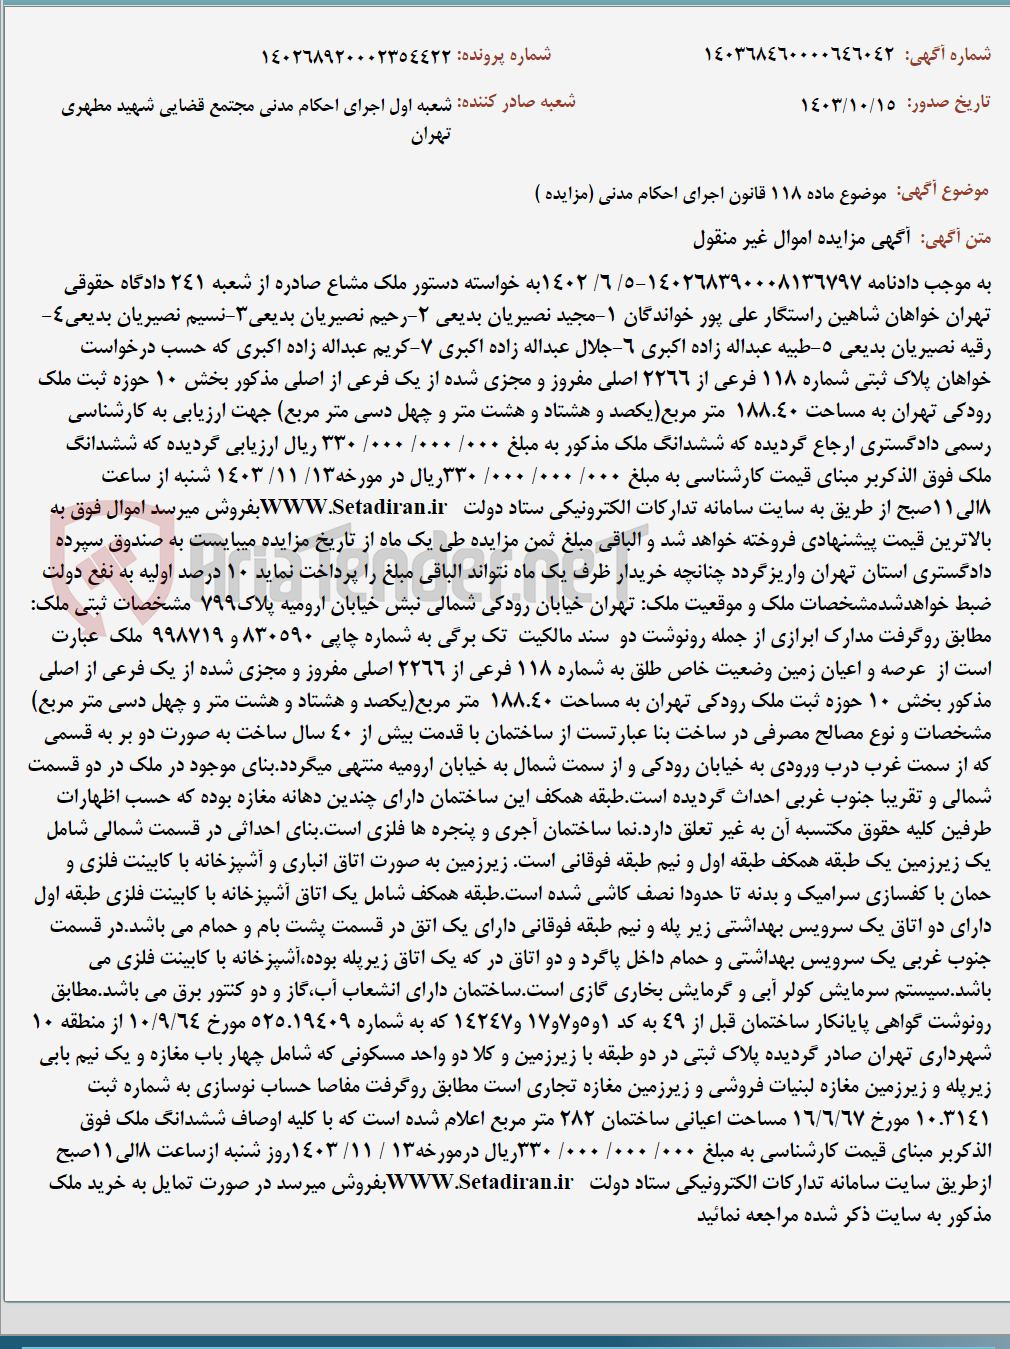 شماره آگهی: ۱۴۰۳۶۸۴۶۰۰۰۰۶۴۶۰۴۲ شماره پرونده: ۱۴۰۲۶۸۹۲۰۰۰۲۳۵۴۴۲۲
تاریخ صدور: ۱۴۰۳/۱۰/۱۵ شعبه صادر کننده: شعبه اول اجرای احکام مدنی مجتمع قضایی شهید مطهری
تهران
موضوع آگهی: موضوع ماده ۱۱۸ قانون اجرای احکام مدنی (مزایده )
متن آگهی: آگهی مزایده اموال غیر منقول
به موجب دادنامه ۱۴۰۲۶۸۳۹۰۰۰۸۱۳۶۷۹۷-۵/ ۶/ ۱۴۰۲به خواسته دستور ملک مشاع صادره از شعبه ۲۴۱ دادگاه حقوقی
تهران خواهان شاهین راستگار علی پور خواندگان ۱-مجید نصیریان بدیعی ۲-رحیم نصیریان بدیعی۳-نسیم نصیریان بدیعی۴-
رقیه نصیریان بدیعی ۵-طبیه عبداله زاده اکبری ۶-جلال عبداله زاده اکبری ۷-کریم عبداله زاده اکبری که حسب درخواست
خواهان پلاک ثبتی شماره ۱۱۸ فرعی از ۲۲۶۶ اصلی مفروز و مجزی شده از یک فرعی از اصلی مذکور بخش ۱۰ حوزه ثبت ملک
رودکی تهران به مساحت ۱۸۸.۴۰ متر مربع(یکصد و هشتاد و هشت متر و چهل دسی متر مربع) جهت ارزیابی به کارشناسی
رسمی دادگستری ارجاع گردیده که ششدانگ ملک مذکور به مبلغ ۰۰۰/ ۰۰۰/ ۰۰۰/ ۳۳۰ ریال ارزیابی گردیده که ششدانگ
ملک فوق الذکربر مبنای قیمت کارشناسی به مبلغ ۰۰۰/ ۰۰۰/ ۰۰۰/ ۳۳۰ریال در مورخه۱۳/ ۱۱/ ۱۴۰۳ شنبه از ساعت
۸الی۱۱صبح از طریق به سایت سامانه تدارکات الکترونیکی ستاد دولت WWW.Setadiran.irبفروش میرسد اموال فوق به
بالاترین قیمت پیشنهادی فروخته خواهد شد و الباقی مبلغ ثمن مزایده طی یک ماه از تاریخ مزایده میبایست به صندوق سپرده
دادگستری استان تهران واریزگردد چنانچه خریدار ظرف یک ماه نتواند الباقی مبلغ را پرداخت نماید ۱۰ درصد اولیه به نفع دولت
ضبط خواهدشدمشخصات ملک و موقعیت ملک: تهران خیابان رودکی شمالی نبش خیابان ارومیه پلاک۷۹۹ مشخصات ثبتی ملک:
مطابق روگرفت مدارک ابرازی از جمله رونوشت دو سند مالکیت تک برگی به شماره چاپی ۸۳۰۵۹۰ و ۹۹۸۷۱۹ ملک عبارت
است از عرصه و اعیان زمین وضعیت خاص طلق به شماره ۱۱۸ فرعی از ۲۲۶۶ اصلی مفروز و مجزی شده از یک فرعی از اصلی
مذکور بخش ۱۰ حوزه ثبت ملک رودکی تهران به مساحت ۱۸۸.۴۰ متر مربع(یکصد و هشتاد و هشت متر و چهل دسی متر مربع)
مشخصات و نوع مصالح مصرفی در ساخت بنا عبارتست از ساختمان با قدمت بیش از ۴۰ سال ساخت به صورت دو بر به قسمی
که از سمت غرب درب ورودی به خیابان رودکی و از سمت شمال به خیابان ارومیه منتهی میگردد.بنای موجود در ملک در دو قسمت
شمالی و تقریبا جنوب غربی احداث گردیده است.طبقه همکف این ساختمان دارای چندین دهانه مغازه بوده که حسب اظهارات
طرفین کلیه حقوق مکتسبه آن به غیر تعلق دارد.نما ساختمان آجری و پنجره ها فلزی است.بنای احداثی در قسمت شمالی شامل
یک زیرزمین یک طبقه همکف طبقه اول و نیم طبقه فوقانی است. زیرزمین به صورت اتاق انباری و آشپزخانه با کابینت فلزی و
حمان با کفسازی سرامیک و بدنه تا حدودا نصف کاشی شده است.طبقه همکف شامل یک اتاق آشپزخانه با کابینت فلزی طبقه اول
دارای دو اتاق یک سرویس بهداشتی زیر پله و نیم طبقه فوقانی دارای یک اتق در قسمت پشت بام و حمام می باشد.در قسمت
جنوب غربی یک سرویس بهداشتی و حمام داخل پاگرد و دو اتاق در که یک اتاق زیرپله بوده،آشپزخانه با کابینت فلزی می
باشد.سیستم سرمایش کولر آبی و گرمایش بخاری گازی است.ساختمان دارای انشعاب آب،گاز و دو کنتور برق می باشد.مطابق
رونوشت گواهی پایانکار ساختمان قبل از ۴۹ به کد ۱و۵و۷و۱۷ و۱۴۲۴۷ که به شماره ۵۲۵.۱۹۴۰۹ مورخ ۱۰/۹/۶۴ از منطقه ۱۰
شهرداری تهران صادر گردیده پلاک ثبتی در دو طبقه با زیرزمین و کلا دو واحد مسکونی که شامل چهار باب مغازه و یک نیم بابی
زیرپله و زیرزمین مغازه لبنیات فروشی و زیرزمین مغازه تجاری است مطابق روگرفت مفاصا حساب نوسازی به شماره ثبت
۱۰.۳۱۴۱ مورخ ۱۶/۶/۶۷ مساحت اعیانی ساختمان ۲۸۲ متر مربع اعلام شده است که با کلیه اوصاف ششدانگ ملک فوق
الذکربر مبنای قیمت کارشناسی به مبلغ ۰۰۰/ ۰۰۰/ ۰۰۰/ ۳۳۰ریال درمورخه۱۳ / ۱۱/ ۱۴۰۳روز شنبه ازساعت ۸الی۱۱صبح
ازطریق سایت سامانه تدارکات الکترونیکی ستاد دولت WWW.Setadiran.irبفروش میرسد در صورت تمایل به خرید ملک
مذکور به سایت ذکر شده مراجعه نمائید
AriaTender.neT